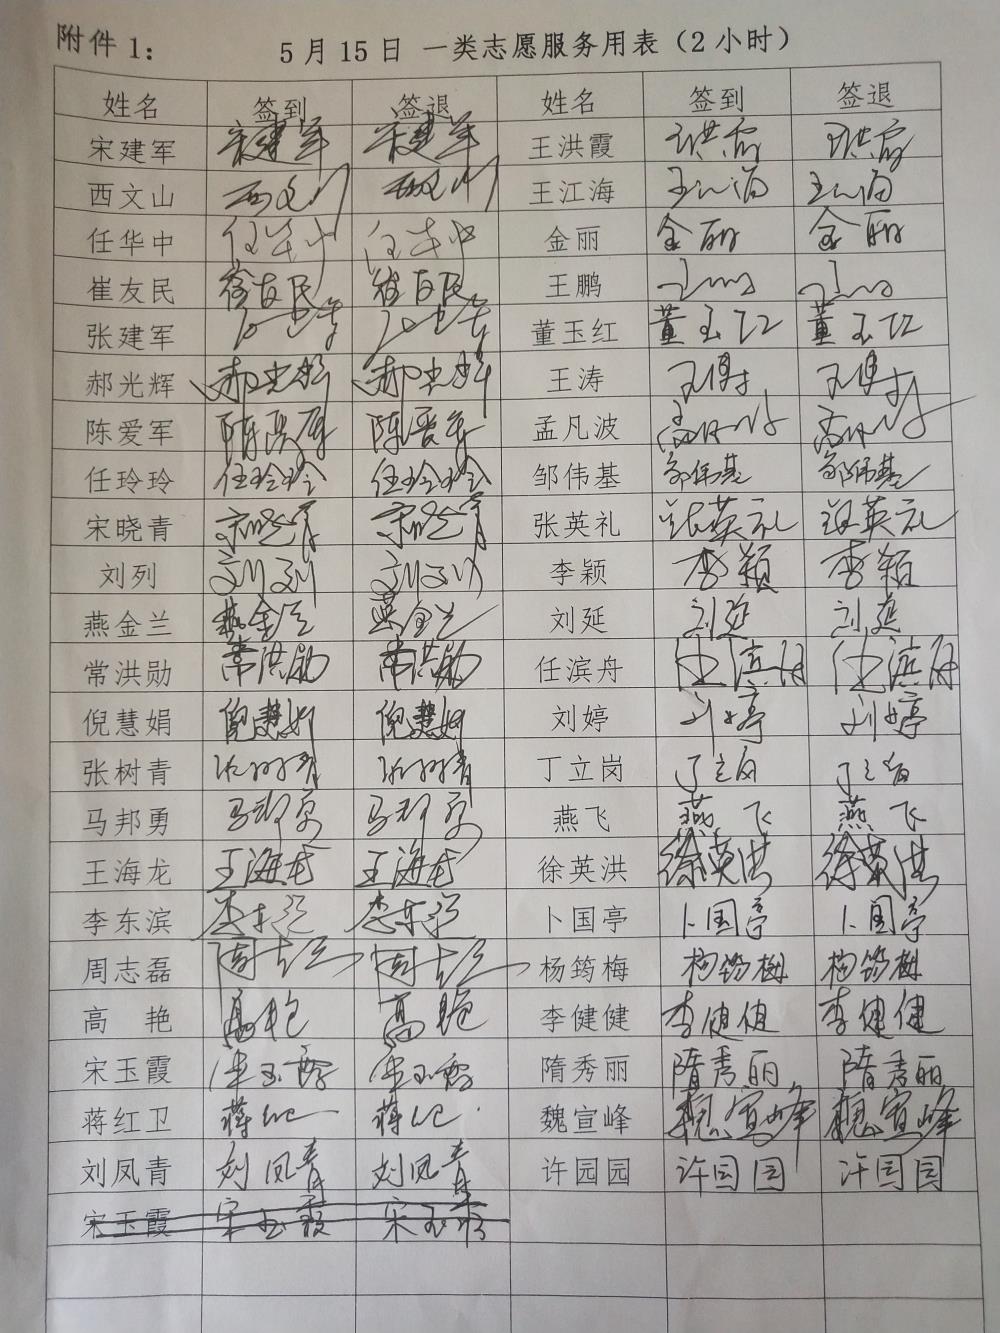 附件1：
5月15日 一类志愿服务用表（2小时）
姓名 签到 签退 姓名 签到 签退
宋建军 宋建军 宋建军 王洪霞 王洪霞 王洪霞
西文山 西文山 西文山 王江海 王江海 王江海
任华中 任华中 任华中 金丽 金丽 金丽
崔友民 崔友民 崔友民 王鹏
张建军 董玉红 董玉红 董玉红
郝光辉 郝光辉 郝光辉 王涛
陈爱军 陈爱军 陈爱军 孟凡波
任玲玲 任玲玲 任玲玲 邹伟基 邹伟基 邹伟基
宋晓青 宋晓青 宋晓青 张英礼 张英礼 张英礼
刘列 刘列 刘列 李颖 李颖 李颖
燕金兰 燕金兰 燕金兰 刘延 刘延 刘延
常洪勋 常洪勋 常洪勋 任滨舟 任滨舟 任滨舟
倪慧娟 倪慧娟 倪慧娟 刘婷 刘婷 刘婷
张树青 张树青 张树青 丁立岗 丁立岗 丁立岗
马邦勇 马邦勇 马邦勇 燕飞 燕飞 燕飞
王海龙 王海龙 王海龙 徐英洪 徐英洪 徐英洪
李东滨 李东滨 李东滨 卜国亭 卜国亭 卜国亭
周志磊 周志磊 周志磊 杨筠梅 杨筠梅 杨筠梅
高 艳 高艳 高艳 李健健 李健健 李健健
宋玉霞 宋玉霞 宋玉霞 隋秀丽 隋秀丽 隋秀丽
蒋红卫 蒋红卫 蒋红卫 魏宣峰 魏宣峰 魏宣峰
刘凤青 刘凤青 刘凤青 许园园 许园园 许园园
宋玉霞 宋玉霞 宋玉霞